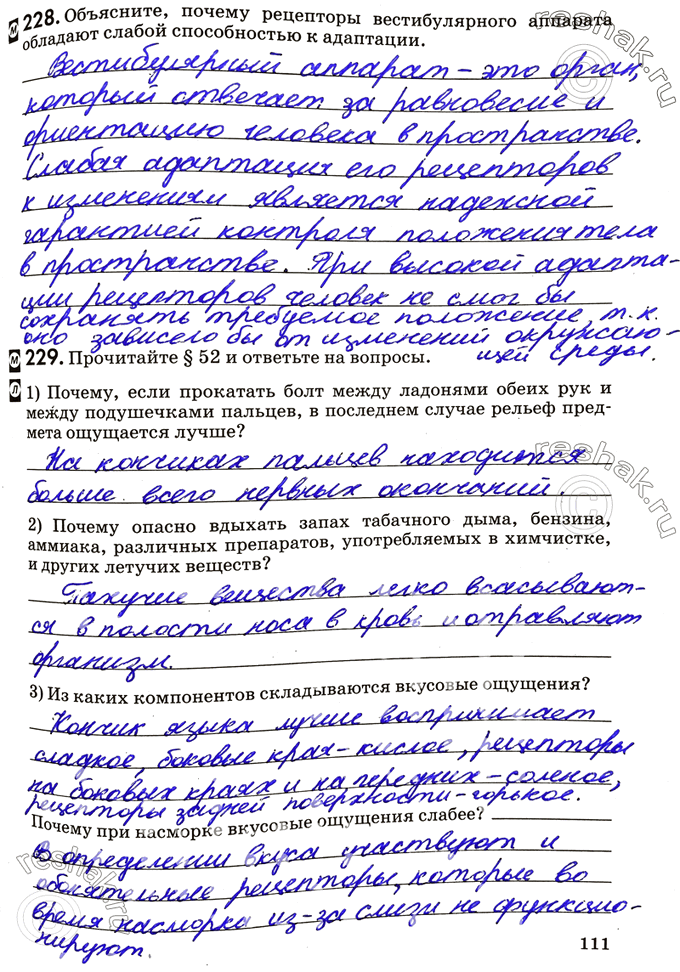 228. Объясните, почему рецепторы вестибулярного аппарата
обладают слабой способностью к адаптации.
Вестибулярный аппарат – это орган,
который отвечает за равновесие и
ориентацию человека в пространстве.
Слабая адаптация его рецепторов
к изменениям является надежной
гарантией контроля положения тела
в пространстве. При высокой адапта-
ции рецепторов человек не смог бы
сохранять требуемое положение, т.к.
оно зависело бы от изменений окружаю-
щей среды.
229. Прочитайте § 52 и ответьте на вопросы.
1) Почему, если прокатать болт между ладонями обеих рук и
между подушечками пальцев, в последнем случае рельеф пред-
мета ощущается лучше?
На кончиках пальцев находится
больше всего нервных окончаний.
2) Почему опасно вдыхать запах табачного дыма, бензина,
аммиака, различных препаратов, употребляемых в химчистке,
и других летучих веществ?
Пахучие вещества легко всасывают-
ся в полости носа в кровь и отравляют
организм.
3) Из каких компонентов складываются вкусовые ощущения?
Кончик языка лучше воспринимает
сладкое, боковые края - кислое, рецепторы
на боковых краях и на передних – соленое,
рецепторы задней поверхности - горькое.
Почему при насморке вкусовые ощущения слабее?
В определении вкуса участвуют и
обонятельные рецепторы, которые во
время насморка из-за слизи не функцио-
нируют.
111
reshak.ru
reshak.ru
reshak.ru
reshak.ru